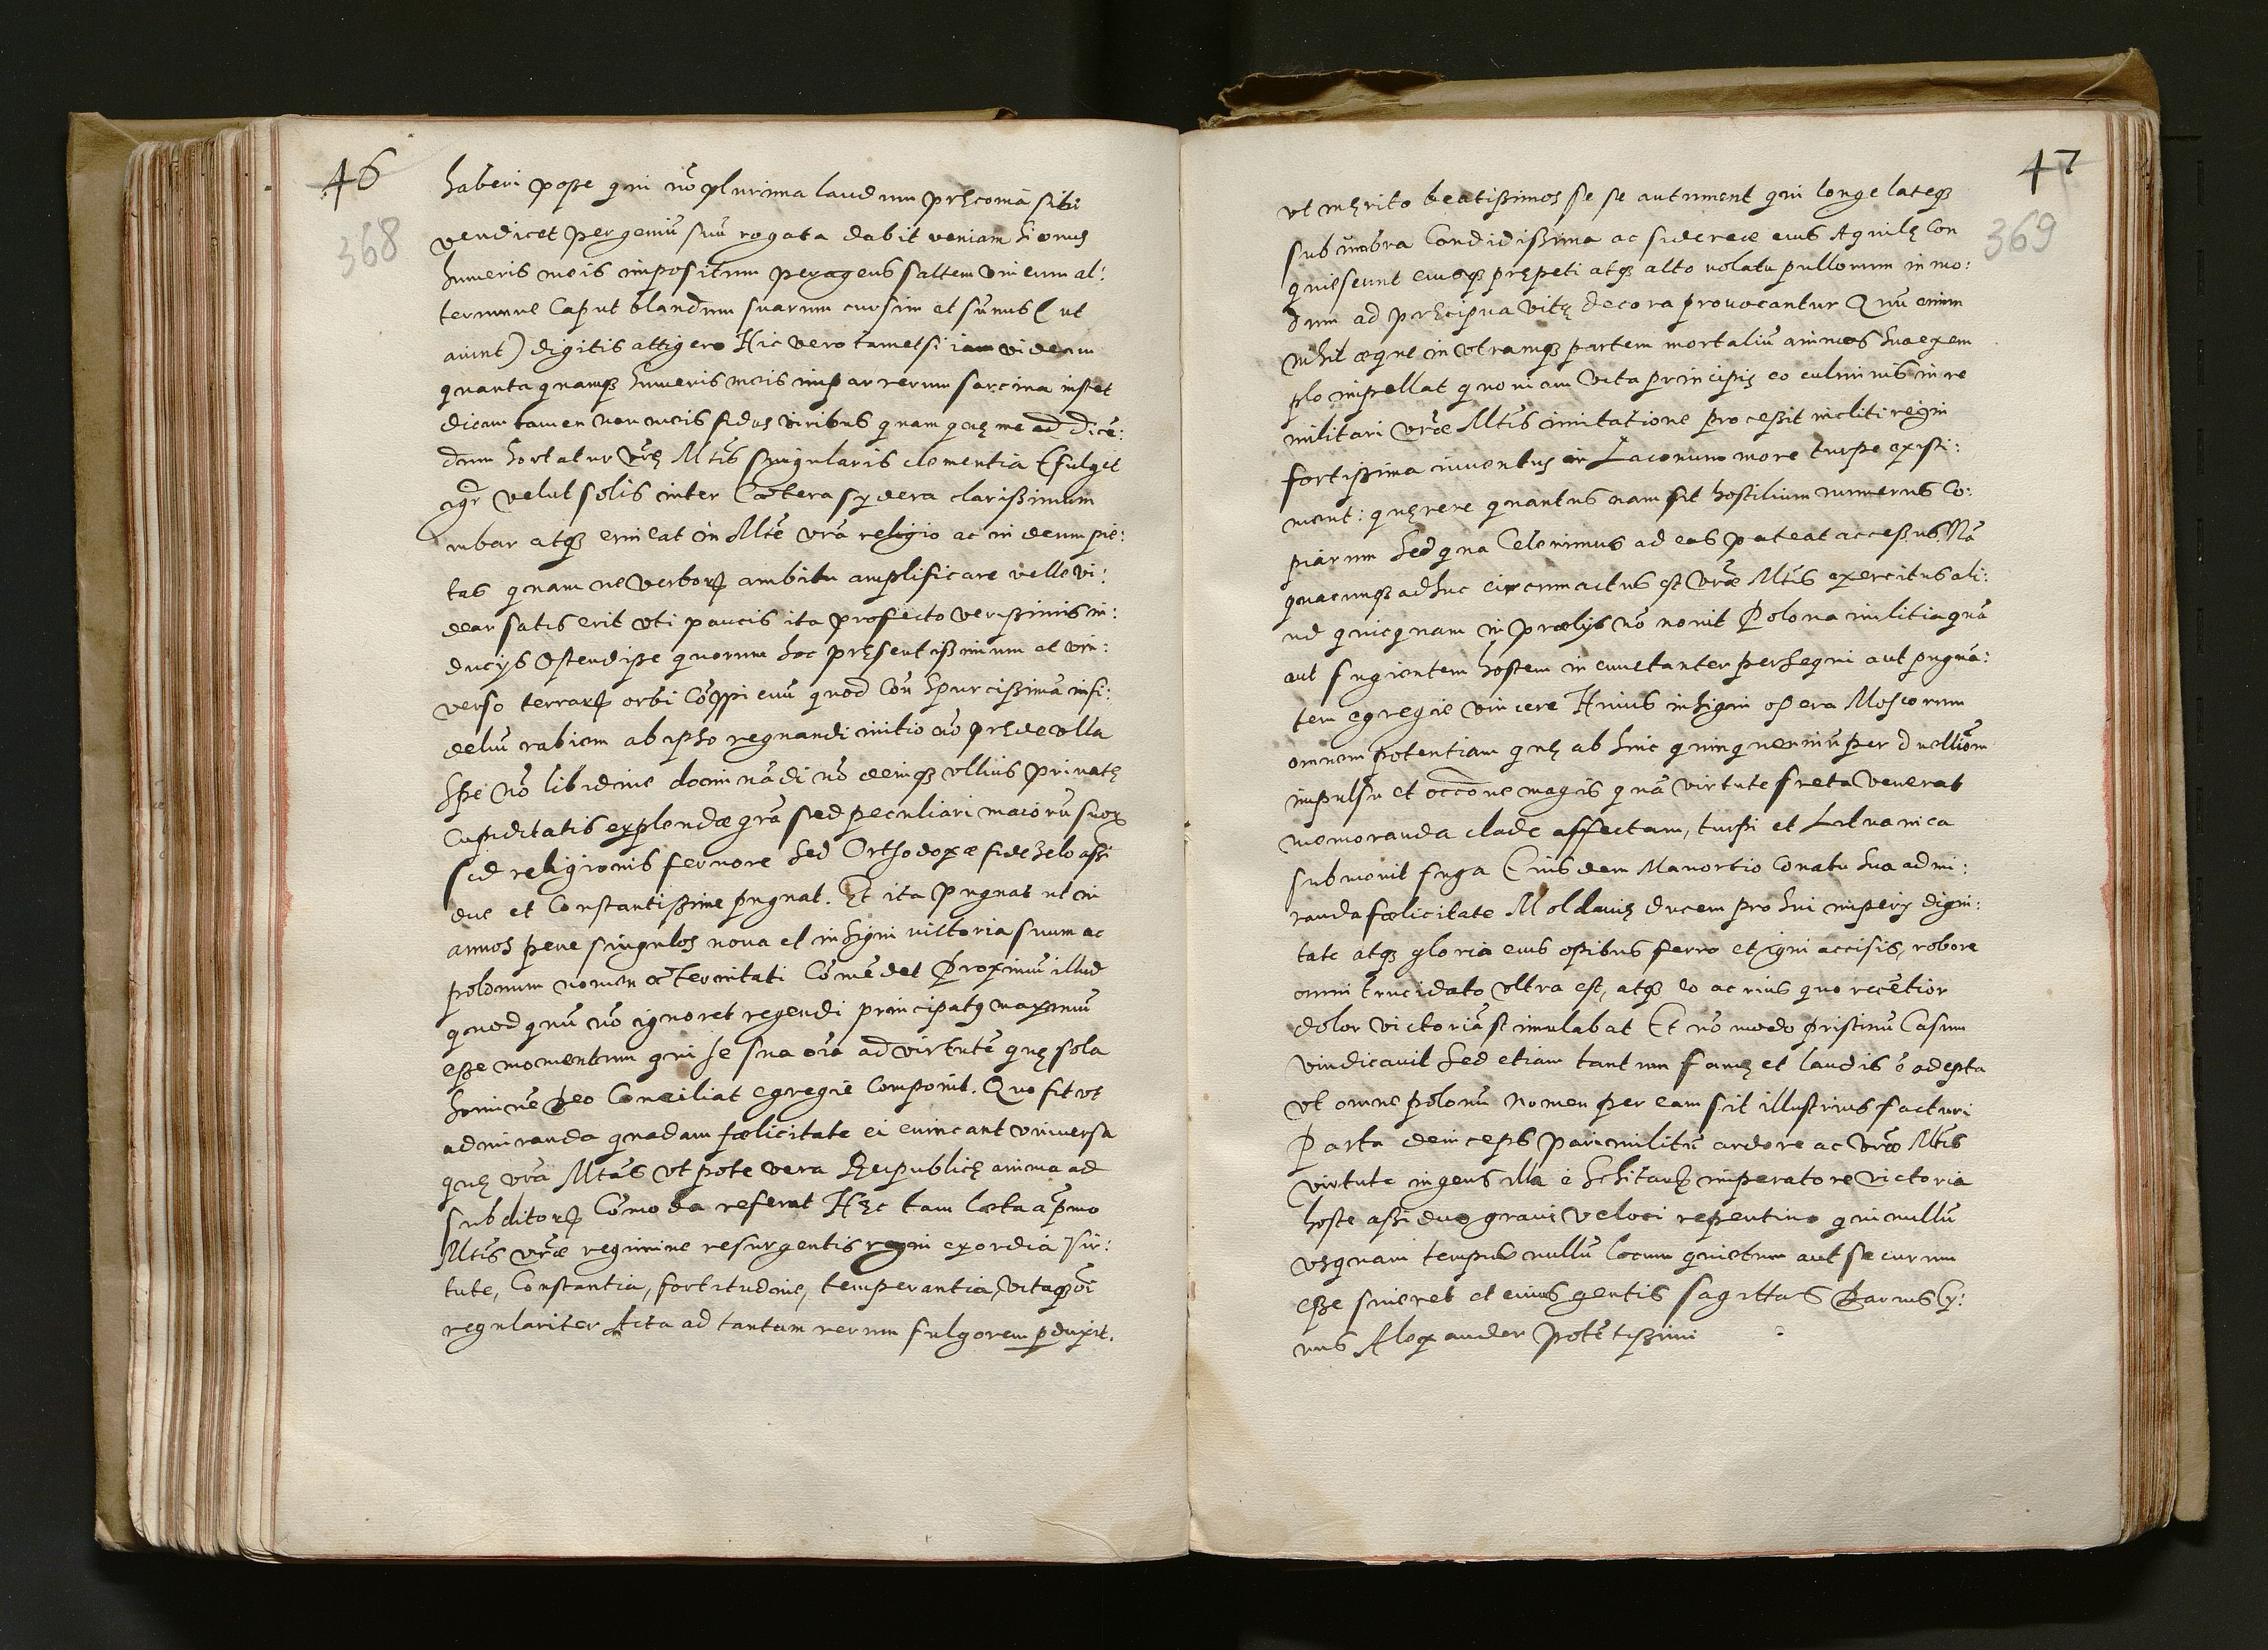 46
368
haberi posse qui nõ plurima laudum pręconia sibi
vendicet per geniũ suũ rogata dabit veniam si onus
humeris meis impositum peragens saltem vni eum al:
terumue Caput blandum suarum cursim et sum̃is (ut
aiunt) digitis attigero Hic vero tametsi iam videam
quanta quamq3 humeris meis impar rerum sarcina instet
dicam tamen non meis fidus viribus quam quę me ad dicẽ:
dum hortatur vr̃ę Mtis singularis clementia (fulget
igr̃ velut solis inter Cætera sydera clarissimum
iubar atq3 eminat in Mte vr̃a religio ac in deum pie:
tas quam ne verborꝝ ambitu amplificare velle vi:
dear satis erit vti paucis ita profecto verissimis in:
ducijs ostendisse quorum hoc pręsentissimum et vni:
verso terrarꝝ orbi Cõspicuũ quod Con spurcissimã infi:
deliũ rabiem ab ipso regnandi initio nõ prędę vlla
spe nõ libidine dominãdi nõ deniq3 vllius priuatę
Cupiditatis explendæ gr̃a sed peculiari maiorũ suorꝝ
sed religionis feruore sed Orthodoxæ fidei zelo assi
due et Constantissime pugnat. Et ita pugnat ut in
annos pene singulos noua et insigni victoria suum ac
polonum nomen æternitati Com̃ẽdet Proximũ illud
quod quũ nõ ignoret regendi principatꝰ maximũ
esse momentum qui se sua oĩa ad virtutẽ quę sola
hominẽ Deo Conciliat egregie Componit. Quo fit vt
admiranda quadam fœlicitate ei eueniant vniuersa
quę vr̃a Mtas vt pote vera Reipublicę anima ad
subditorꝝ Com̃oda referat Hęc tam læta a p̃mo
Mtis vr̃æ regimine resurgentis regni exordia vir:
tute, Constantia, fortitudine, temperantia, vitaq3 oĩ
regulariter Acta ad tantum rerum fulgorem pduxit.
47
369
vt męrito beatissimos se se autument qui longe lateq3
sub vmbra Candidissima ac sidereæ eius Aquilę Con
quiescunt eiusq3 prępeti atq3 alto uolatu pullorum in mo:
dum ad pręcipua vitę decora prouocantur Quũ enim
nihil æque in vtramq3 partem mortaliũ animos suo exem
plo impellat quoniam Vita principis eo culminis in re
militari vr̃æ Mtis imitatione processit incliti regni
fortissima iuuentus in Laconum more turpe existi:
ment: quęrere quantus nam sit hostilium numerus Co:
piarum sed qua Celerimus ad eas pateat accessus. Nã
quacunq3 adhuc circumactus est vr̃æ Mtis exercitus ali:
ud quicquam in prælijs nõ nouit Polona militia quã
aut fugientem hostem incunctanter persequi aut pugnã:
tem egregie vincere Huius insigni opera Moscorum
omnem potentiam quę ab hinc quinqueniũ per duellionũ
impulsu et occõne magis quã virtute freta venerat
memoranda clade affectam, turpi et Lituanica
submouit fuga Eiusdem Mauortio Conatu sua admi:
randa fœlicitate Moldauię ducem pro sui imperij digni:
tate atq3 gloria eius opibus ferro et igni accisis, robore
omni trucidato vltra est, atq3 eo acrius quo recẽtior
dolor victoriã stimulabat Et nõ modo pristinũ Casum
vindicauit sed etiam tantum famę et laudis ẽ adepta
vt omne polonũ nomen per eam sit illustrius facturi
Parta deinceps pari militũ ardore ac vr̃æ Mtis
virtute ingens illa è Schitarꝝ imperatore victoria
hoste assiduo graui veloci repentino qui nullũ
vsquam tempus nullũ locum quietum aut securum
esse sineret et cuius gentis sagittas Darius Cy:
rus Alexander potẽtissimi